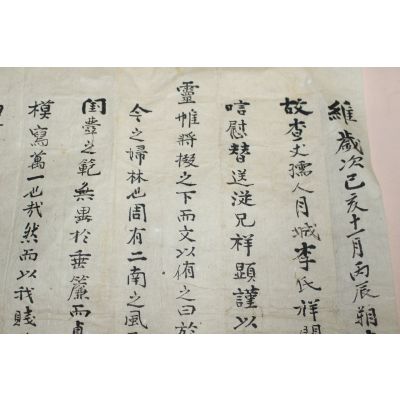 維歲次己亥十一月丙辰朔
故査丈孺人月城李氏祥
唁慰替送從兄祥顯謹以
靈帷將掇之下而文以侑之曰於
今之婦林也周有二南之風
閨壼之範無累於垂簾而
模寫萬一也哉然而以我賤